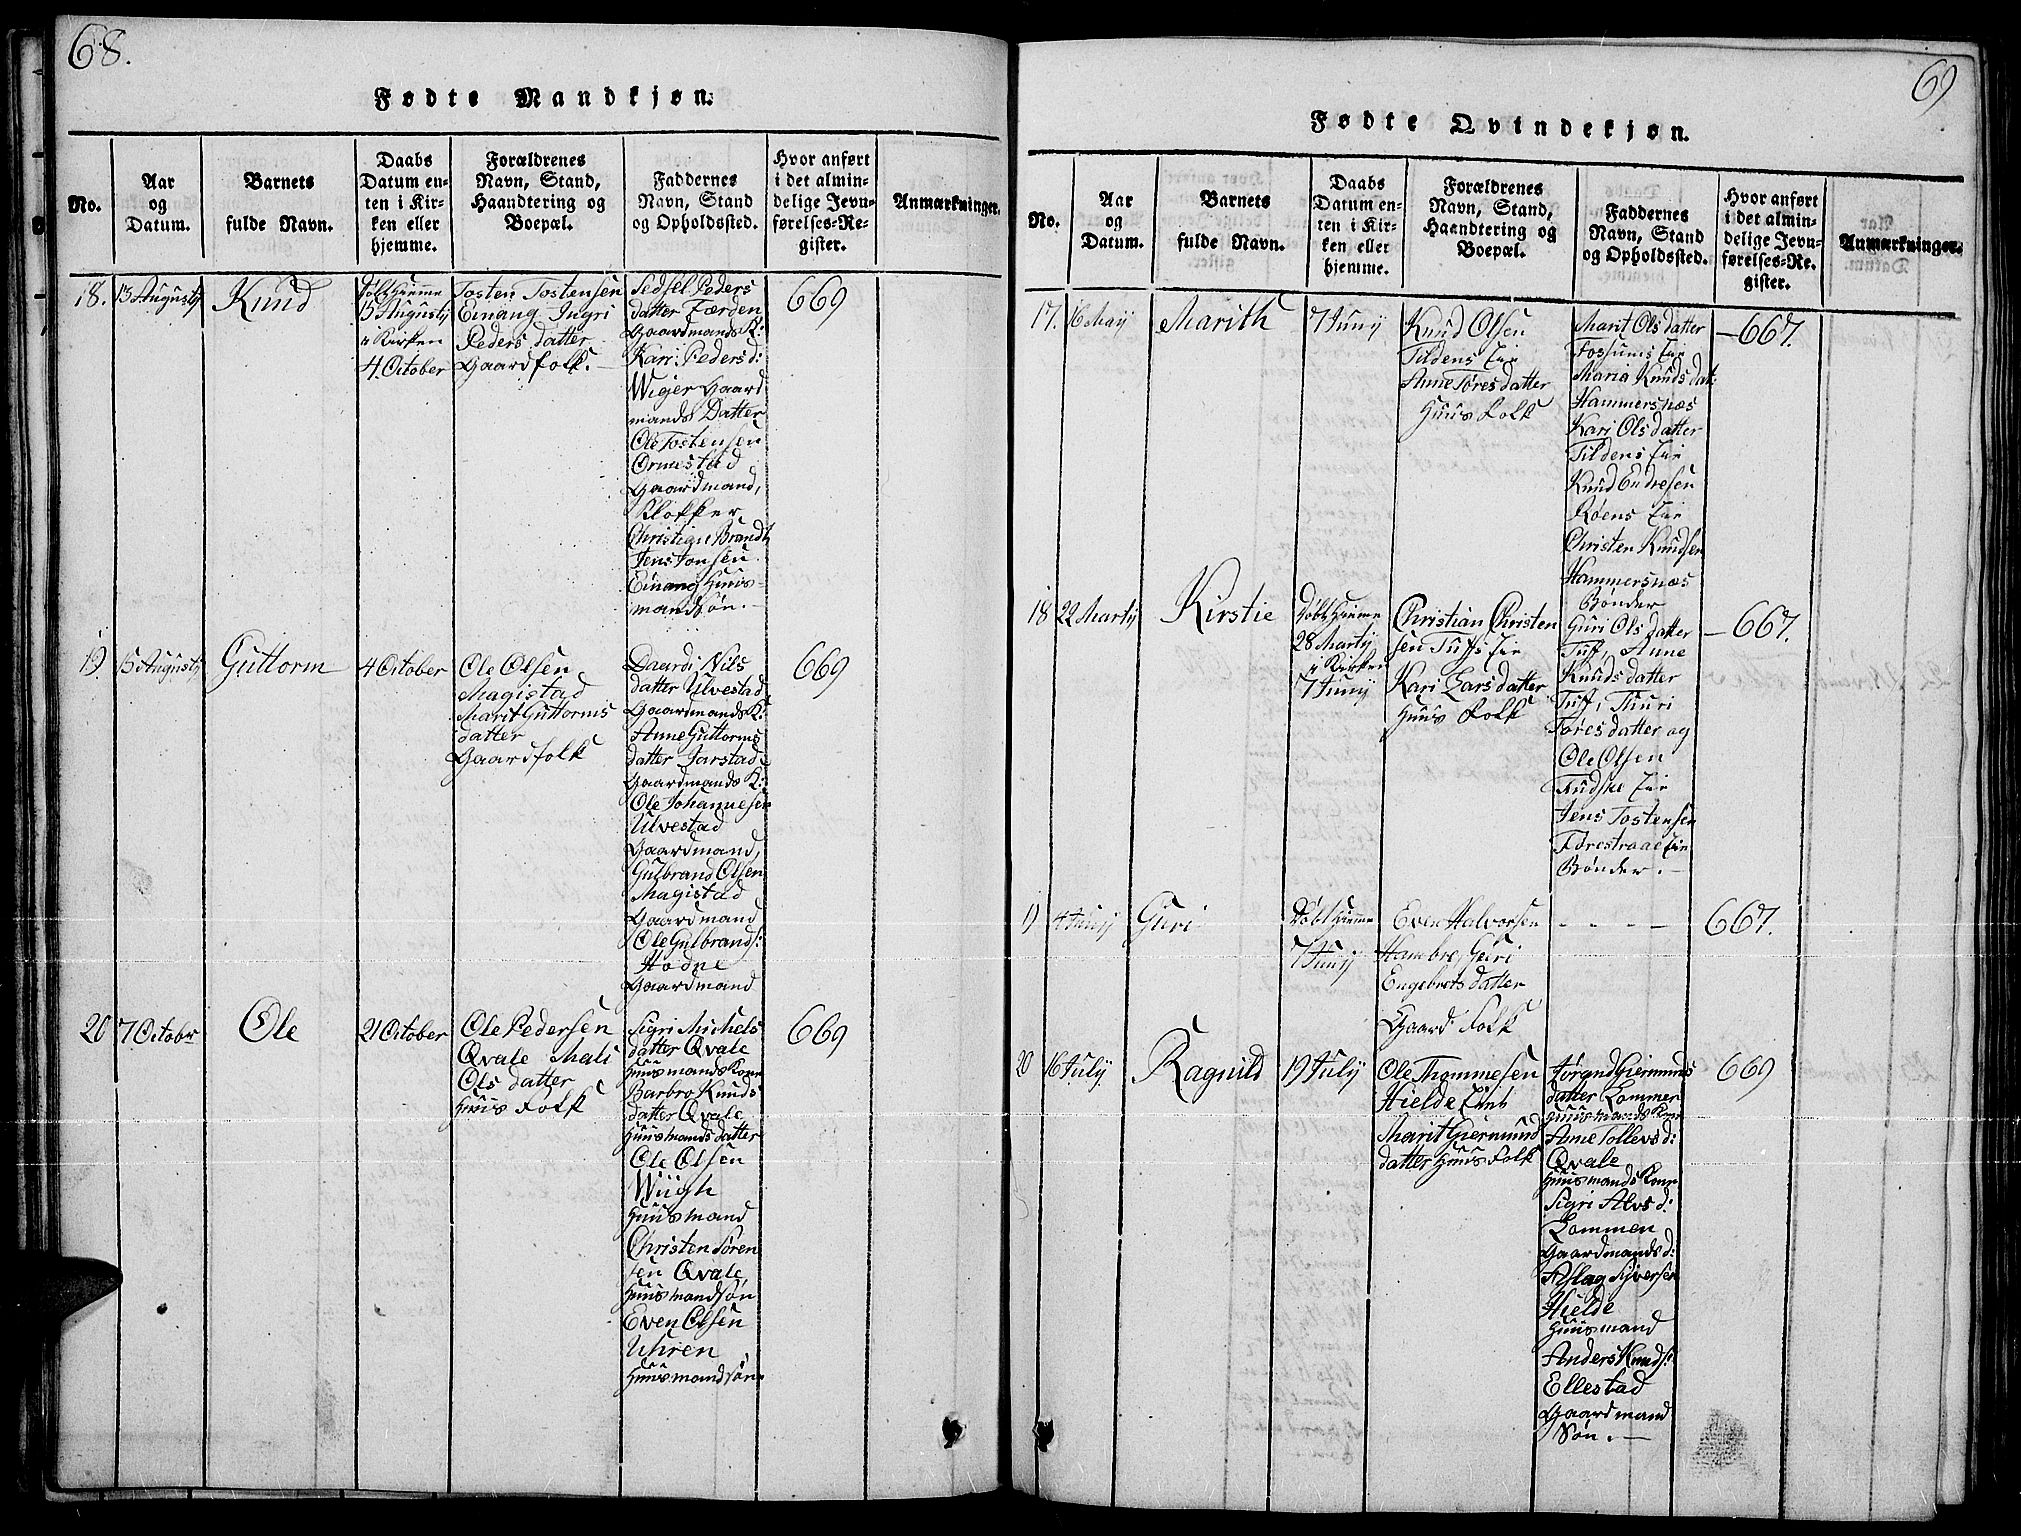 68.
Fødte Mandkjøn.
No.
Aar
og
Datum.
Barnets
fulde Navn.
Daabs
Datum en-
ten i Kir-
ken eller
hjemme.
Forældrenes
Navn, Stand,
Haandtering og
Boepæl.
Faddernes
Navn, Stand
og Opholdssted.
Hvor anført
i det almin-
delige Jevn-
førelses-Re-
gister.
Anmærkninger.
18.
13 Augustj
Knud
døbt hiemme
15 Augustj
i Kirken
4 October
Tosten Tostensen
Einang Ingri
Peders datter
Gaardfolk.
Sedsel Peders
datter Færden
Gaardmands K:
Kari Peders d:
Wiger Gaard
mands Datter
Ole Tostensen
Ormestad
Gaardmand,
Klokker
Christian Brandt
Jens Jonsen
Einang Huus-
mandsøn.
669
19.
15 Augustj
Guttorm
4 October
Ole Olsen
Magistad
Marit Guttorms
datter
Gaardfolk
Baardi Nils
datter Ulvestad
Gaardmands K:
Anne Guttorms
datter Jarstad
Gaardmands K:
Ole Johannesen
Ulvestad
Gaardmand,
Gulbrand Olsen
Magistad
Gaardmand
Ole Gulbrands:
Hodne
Gaardmand
669
20
7 Octobr
Ole
21 October
Ole Pedersen
Qvale Mali
Ols datter
Huus Folk
Sigri Michels
datter Qvale
Huusmands Kone
Barbro Knuds
datter Qvale
Huusmands datter
Ole Olsen
Wiigh
Huusmand
Christen Søren
sen Qvale
Huusmandsøn
Even Olsen
Uhren
Huusmandsøn
669
69
Fødte Qvindekjøn.
No.
Aar
og
Datum.
Barnets
fulde Navn.
Daabs
Datum en-
ten i Kir-
ken eller
hjemme.
Forældrenes
Navn, Stand,
Haandtering og
Boepæl.
Faddernes
Navn, Stand
og Opholdssted.
Hvor anført
i det almin-
delige Jevn-
førelses-Re-
gister.
Anmærkninger.
17.
16 Maij
Marith
7 Junij
Knud Olsen
Tildens Eie
Anne Tøres datter
Huus Folk
Marit Ols datter
Fossums Eie
Maria Knuds dat:
Hammersnæs
Kari Ols datter
Tildens Eie
Knud Endresen
Røens Eie
Christen Knudsen
Hammersnæs
Bønder
667.
18
22 Martij
Kirstie
Døbt hiemme
28 Martij
i Kirken
7 Junij
Christian Christen
sen Tufs Eie
Kari Lars datter
Huus Folk
Guri Ols datter
Tuf, Anne
Knuds datter
Tuf, Thuri
Tøres datter og
Ole Olsen
Eie
Jens Tostensen
Førestraae Eie
Bønder.
667.
19
4 Junij
Guri
Døbt hiemme
7 Junij
Even Halvorsen
Hambre, Guri
Engebrets datter
Gaard Folk
- - - -
667.
20
16 July
Ragnild
19 July
Ole Thommesen
Hielde
Marit Giermund
datter Huus Folk
Jørand Giermunds
datter Lommen
Huusmands Kone
Anne Tollevs d:
Qvale
Huusmands Kone
Sigri Alvs d:
Lommen
Gaardmands d:
Aslag Siversen
Hielde
Huusmand
Anders Knuds:
Ellestad
Gaardmand
Søn.
669